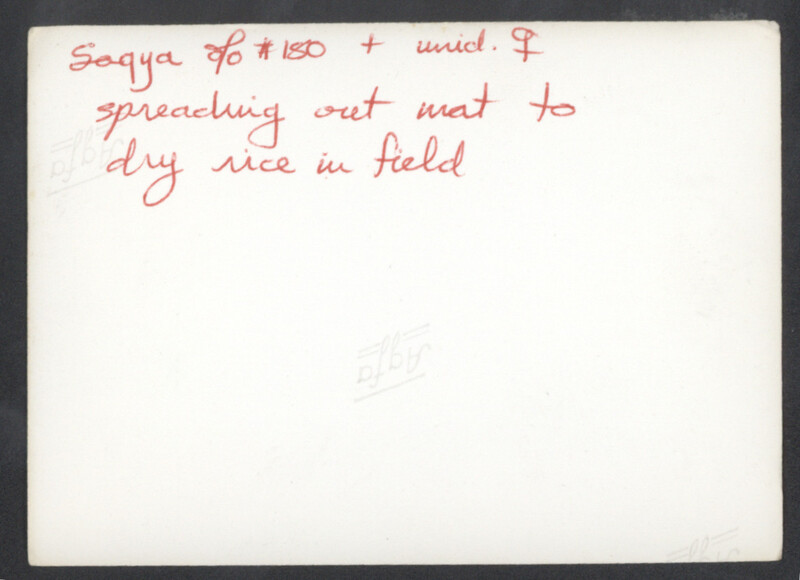 Saqya of #180 + unid. ♀
spreading out mat to
dry rice in field
Agfa
Agfa
Agfa